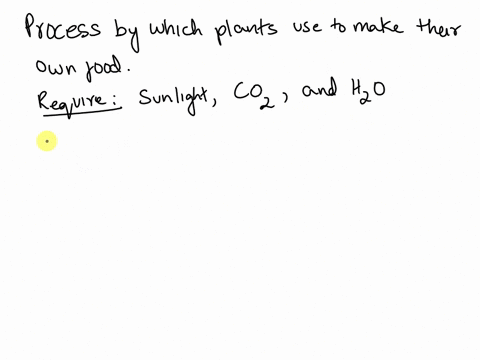 Process by which plants use to make their
own food.
Require: Sunlight, CO₂, and H₂O